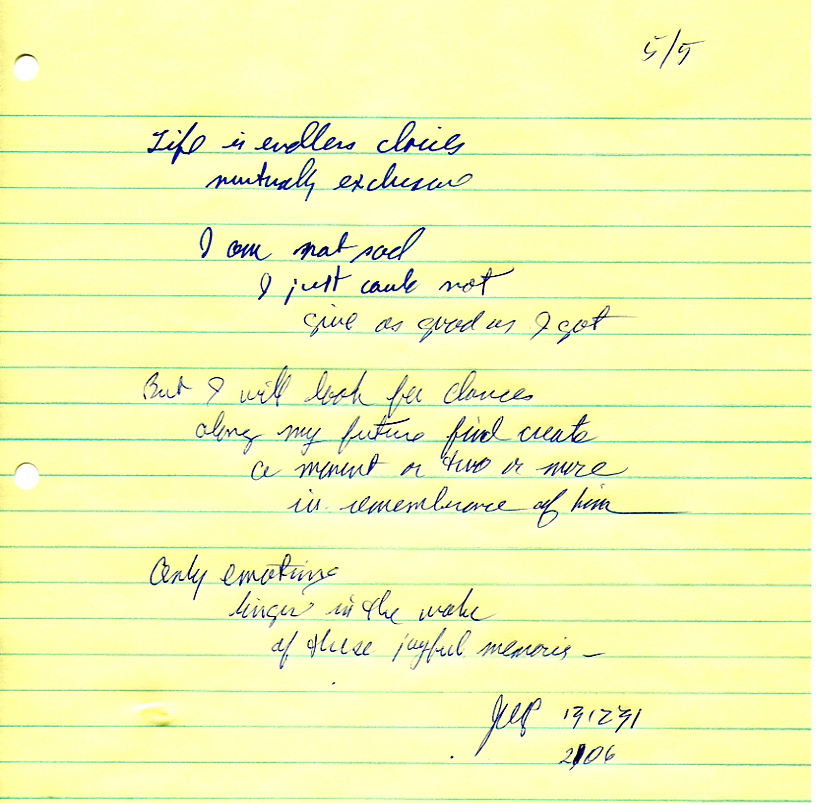 5/5
Life is endless choices
mutually exclusive
I am not sad
I just could not
give as good as I got
But I will look for chances
along my future find create
a moment or two or more
in remembrance of him
Only emotions
linger in the wake
of these joyful memories —
2106